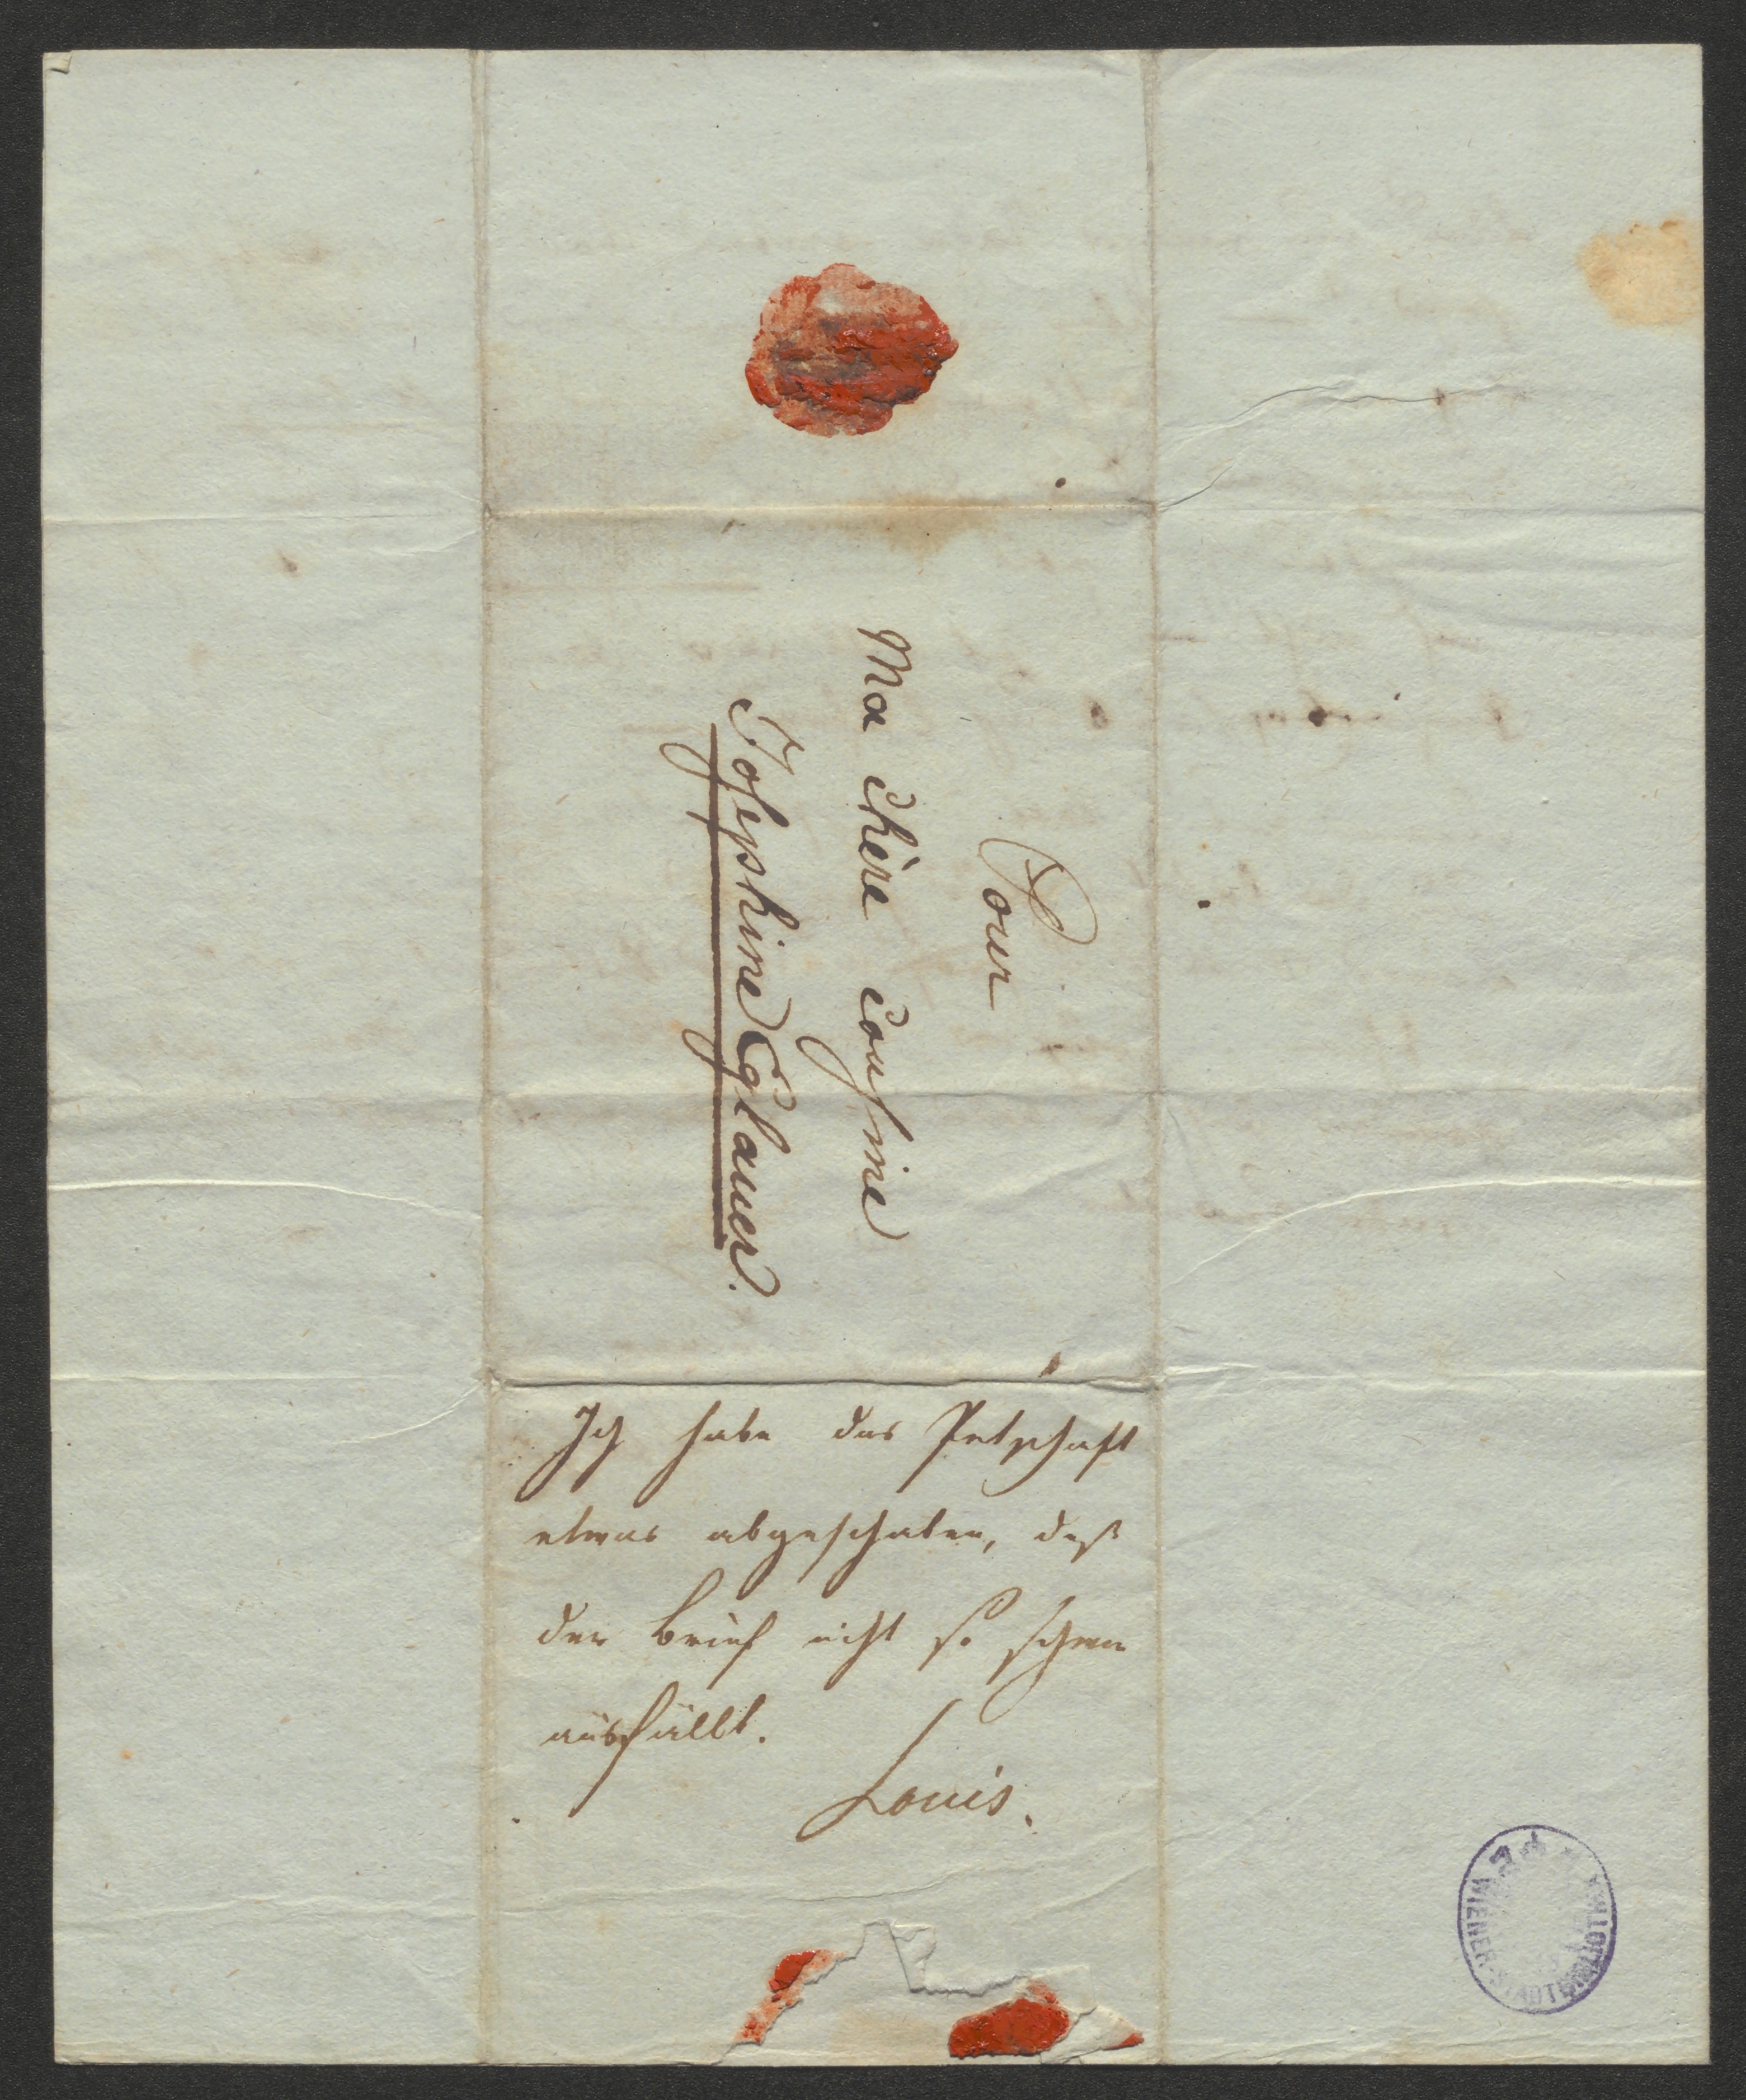 Pour
Ma chère cousine
Josephine Eglauer.
Ich habe das Petschaft
etwas abgeschaben, daß
der Brief nicht so schwer
ausfällt.
Louis.
WIENER STADTBIBLIOTHEK